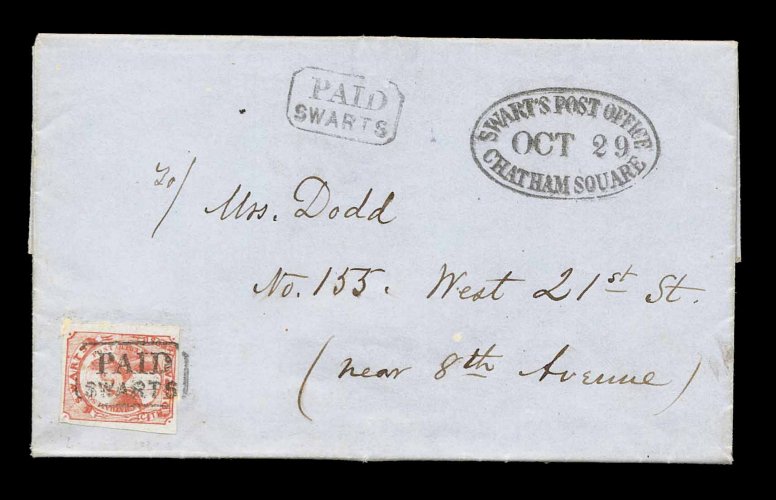 PAID
SWARTS
SWART'S POST OFFICE
OCT 29
CHATHAM SQUARE
To/
Mrs. Dodd
No. 155. West 21st St.
(near 8th Avenue)
PAID
SWARTS